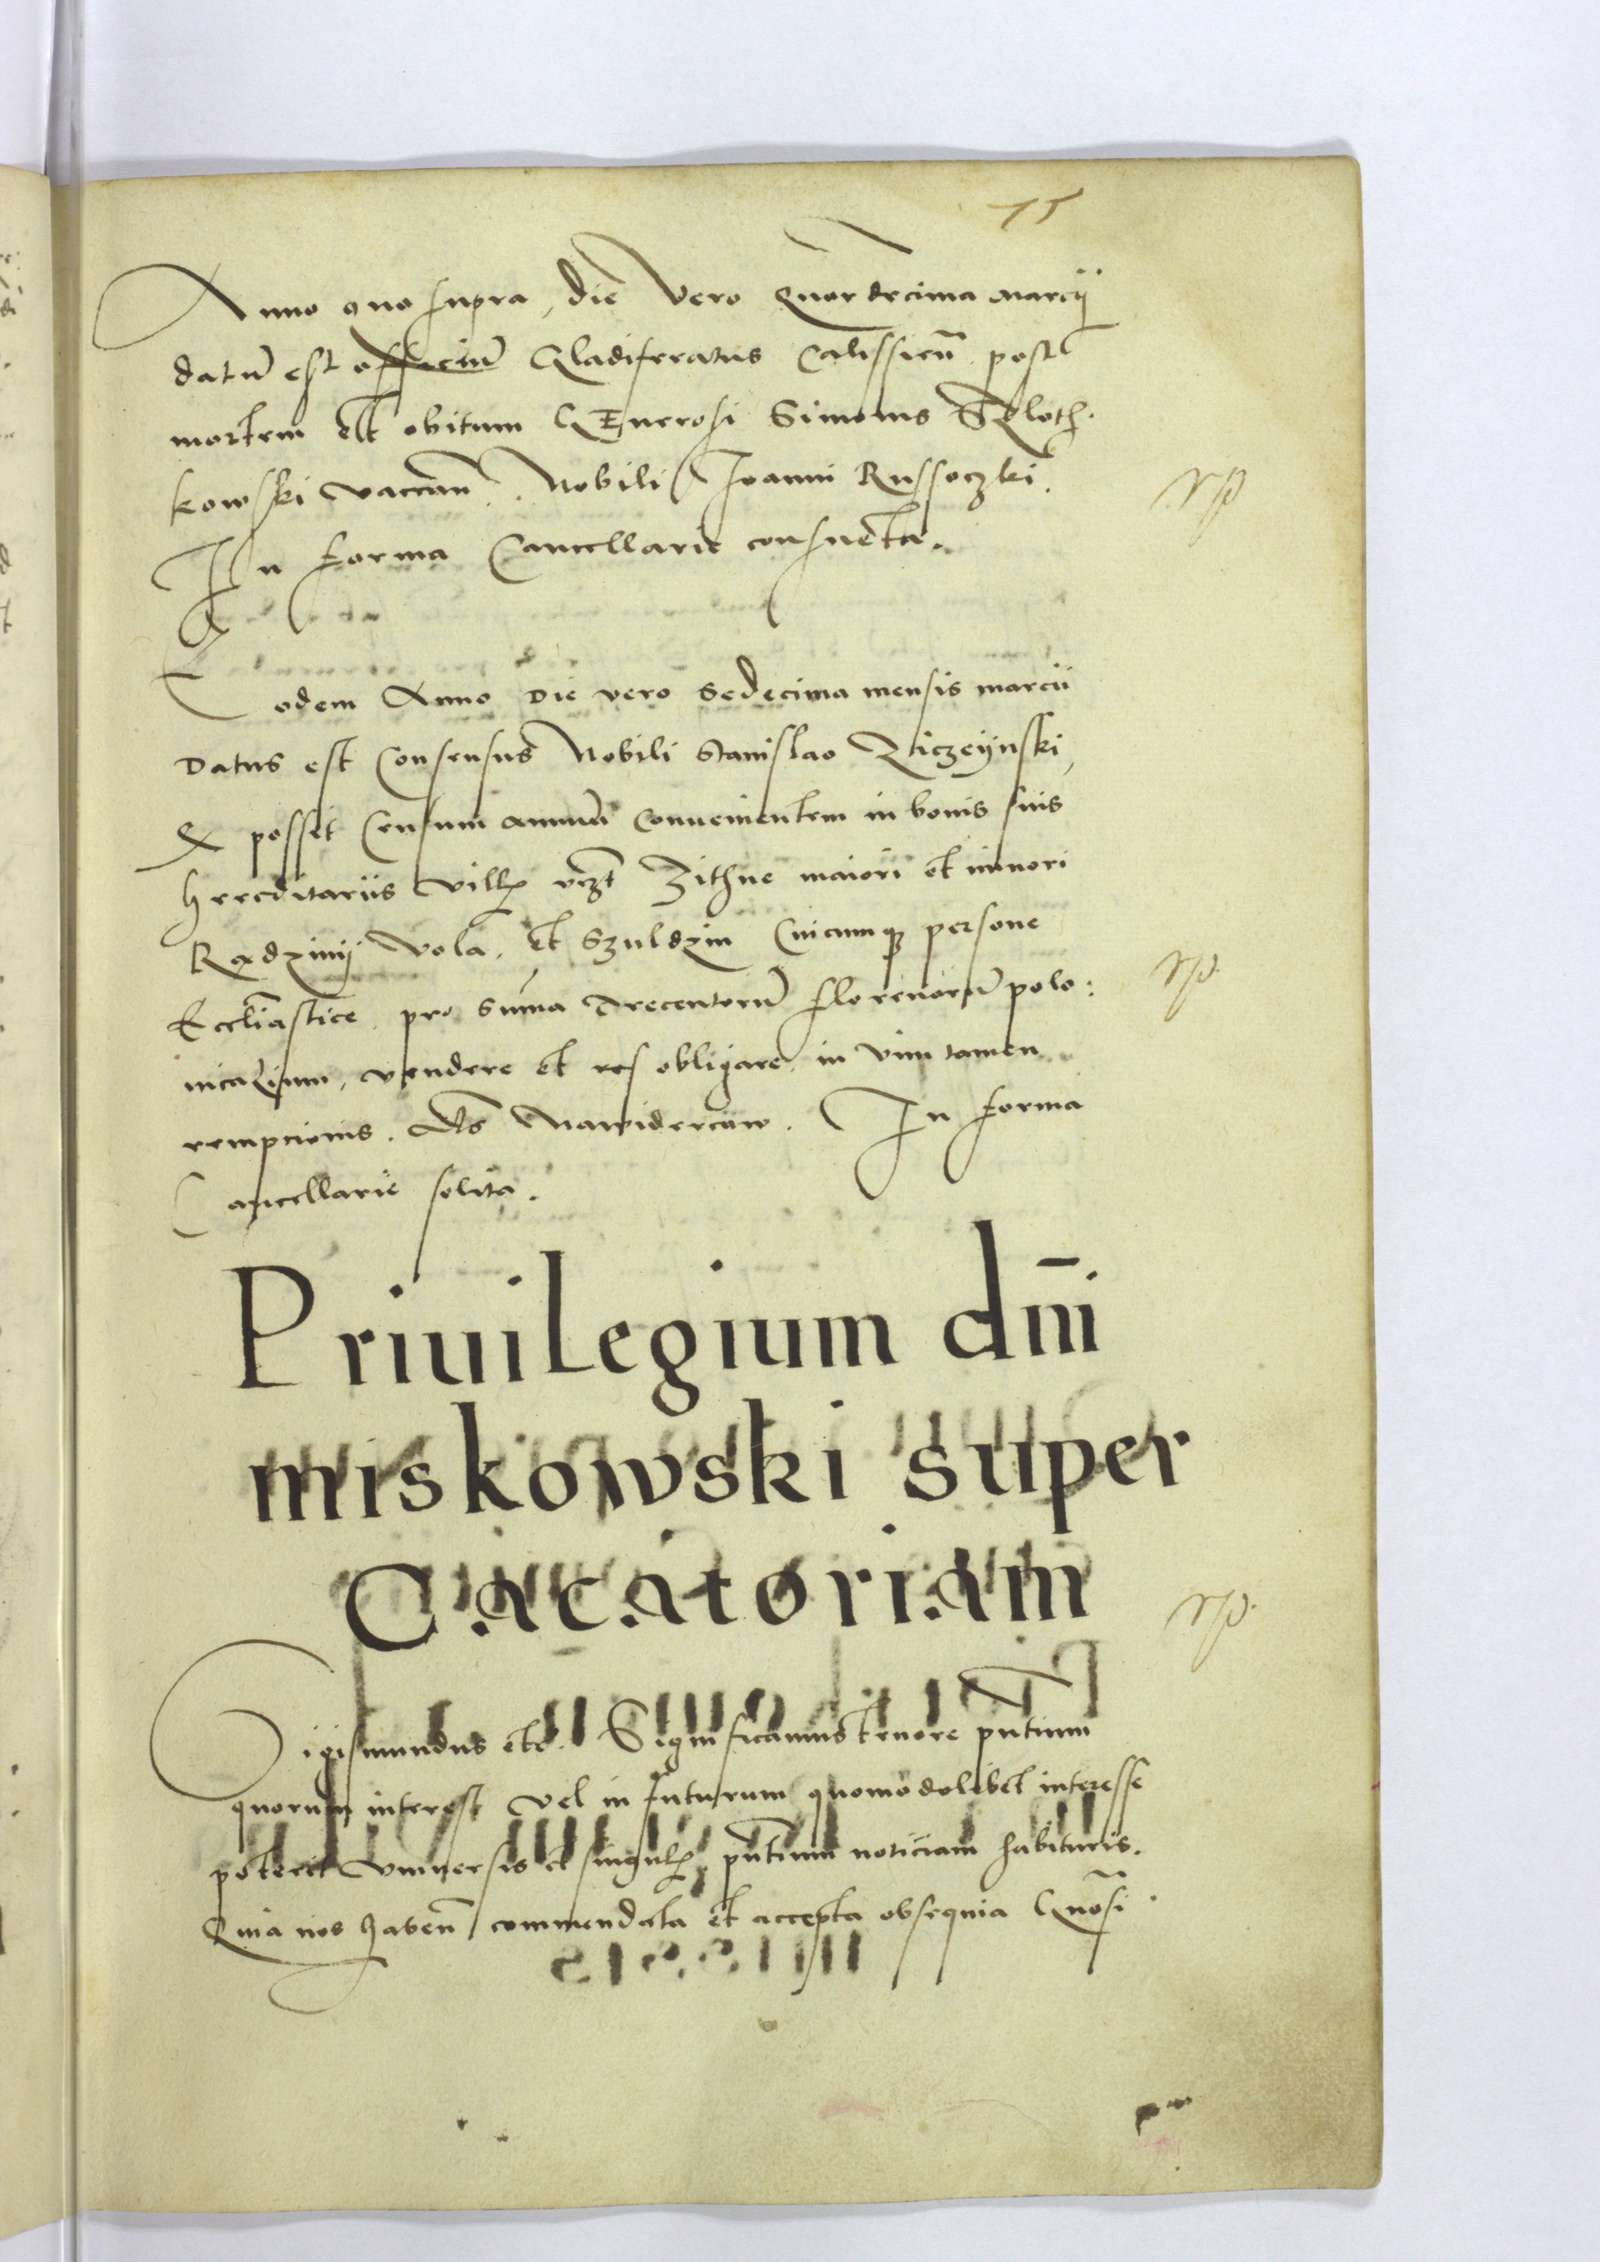 15
Anno quo supra, die vero Quardecima Marcij
datū est officiū Gladiferatus Calissieñ post
mortem et obitum GEnerosi Simonis
kowski vaccañ. Nobili Joanni Russoczki.
In forma Cancellarie consueta.
Eodem Anno Die vero Sedecima mensis marcii
Datus est Consensus Nobili Stanislao
posset Censum annuū Convenientem in bonis suis
hereditariis Zithne maiori et minori
Vola. et Szuldzin Cuicumq persone
Eccliastice pro suma Trecentorū florenorū polo:
nicalium, vendere et obligare, in vim tamen
rempcionis. In forma
Cancellarie solita.
Priuilegium dm̄i
miskowski super
Cacatoriam
Sigismundus etc. Significamus tenore pntium
quorum interest vel in futurum quomodolibet interesse
poterit vniuersis et singul pntium noticiam habituris.
Quia nos habeñ commendata et accepta obsequia Gnosi